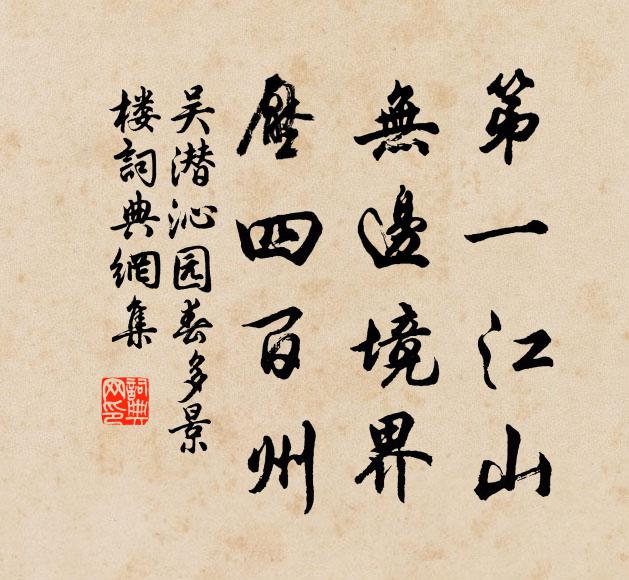 第一江山
無邊境界
壓四百州
吴潜沁园春多景
楼詞典網集
詞典网印